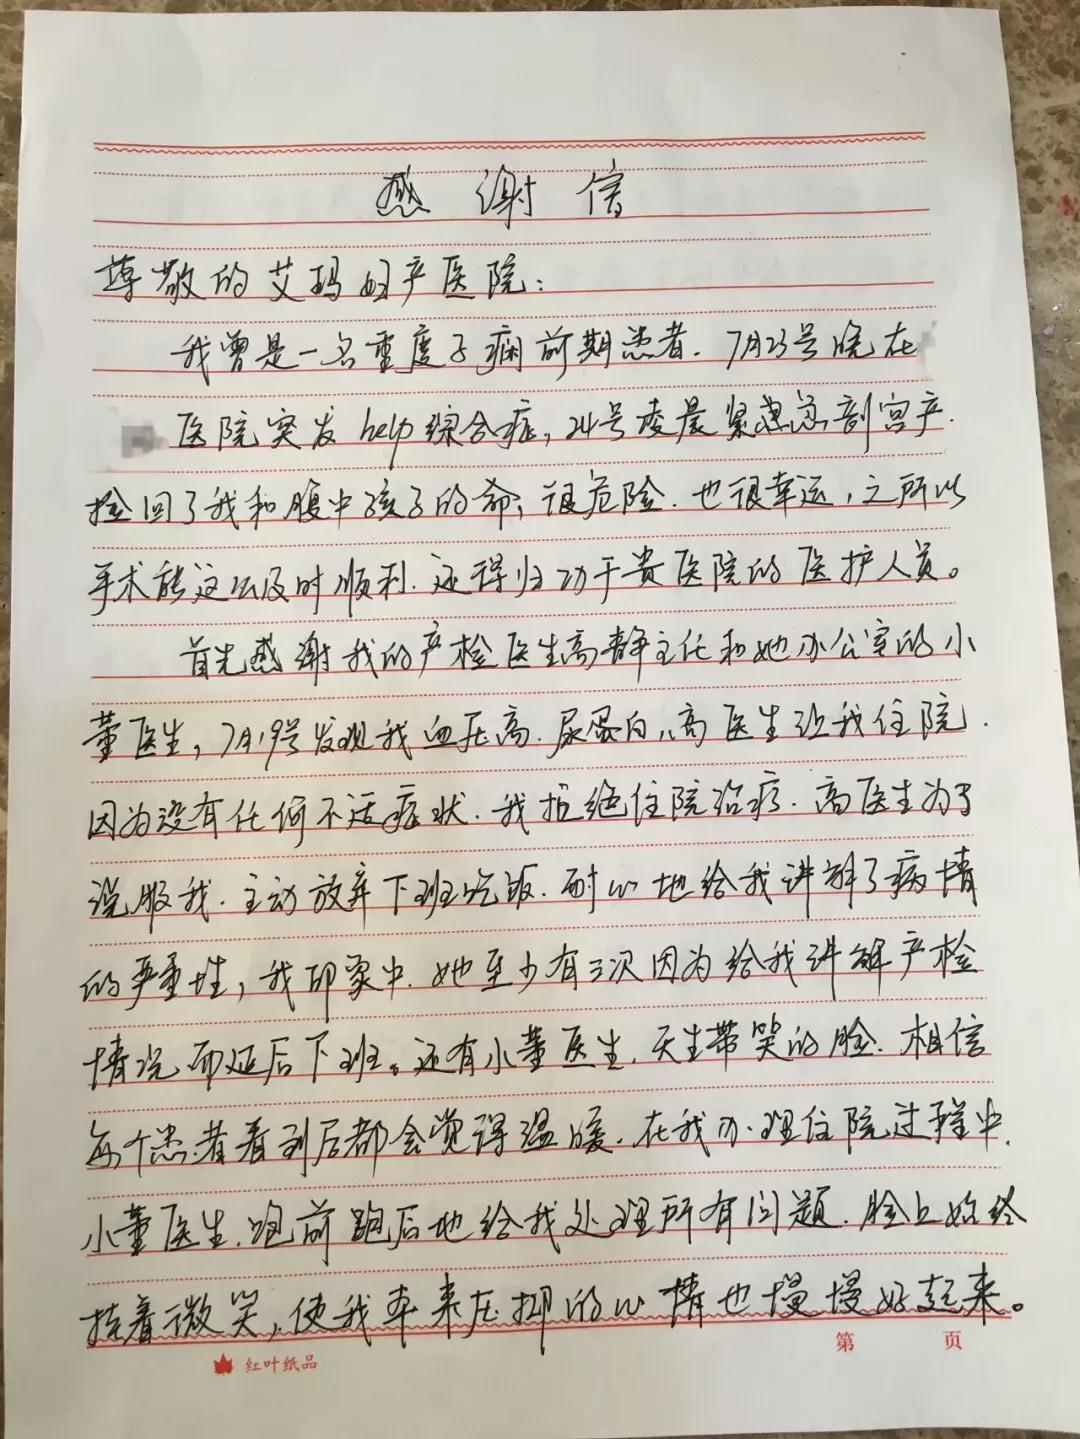 感谢信
尊敬的艾玛妇产医院:
我曾是一名重度子痫前期患者.7月23号晚在
医院突发help综合症,24号凌晨紧急剖宫产.
捡回了我和腹中孩子的命,很危险.也很幸运,之所以
手术能这么及时顺利.还得归功于贵医院的医护人员。
首先感谢我的产检医生高静主任和她办公室的小
董医生,7月19号发现我血压高.尿蛋白,高医生让我住院.
因为没有任何不适症状.我拒绝住院治疗.高医生为了
说服我.主动放弃下班吃饭.耐心地给我讲解了病情
的严重性,我印象中.她至少有三次因为给我讲解产检
情况而延后下班。还有小董医生.天生带笑的脸.相信
每个患者看到后都会觉得温暖.在我办理住院过程中.
小董医生.跑前跑后地给我处理所有问题.脸上始终
挂着微笑,使我本来压抑的心情也慢慢好起来。
红叶纸品
第 页